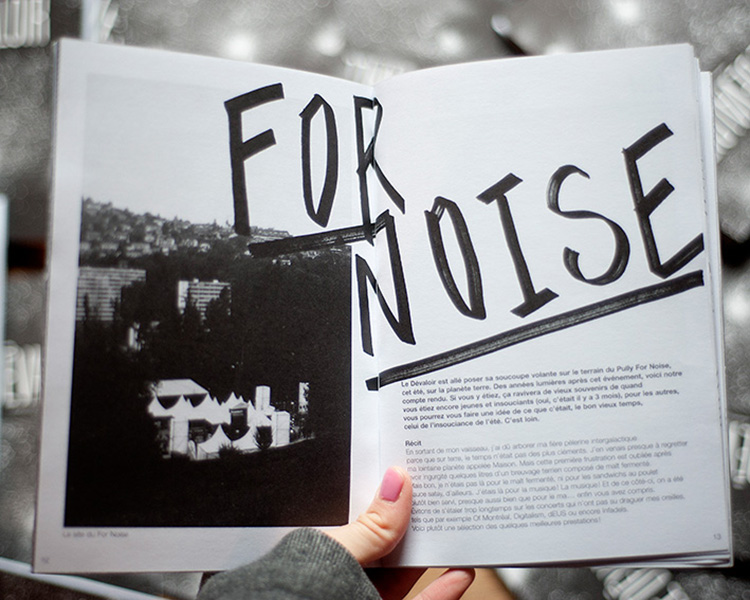 FOR
NOISE
Le Dévaloir est allé poser sa soucoupe volante sur le terrain du Pully For Noise,
cet été, sur la planète terre. Des années lumières après cet événement, voici notre
compte rendu. Si vous y étiez, ça ravivera de vieux souvenirs de quand
vous étiez encore jeunes et insouciants (oui, c'était il y a 3 mois), pour les autres,
vous pourrez vous faire une idée de ce que c'était, le bon vieux temps,
celui de l'insouciance de l'été. C'est loin.
Récit
En sortant de mon vaisseau, j'ai dû arborer ma fière pèlerine intergalactique
parce que sur terre, le temps n'était pas des plus cléments. J'en venais presque à regretter
ma lointaine planète appelée Maison. Mais cette première frustration est oubliée après
avoir ingurgité quelques litres d'un breuvage terrien composé de malt fermenté.
Mais bon, je n'étais pas là pour le malt fermenté, ni pour les sandwichs au poulet
sauce satay, d'ailleurs. J'étais là pour la musique! La musique! Et de ce côté-ci, on a été
plutôt bien servi, presque aussi bien que pour le ma... enfin vous avez compris.
Évitons de s'étaler trop longtemps sur les concerts qui n'ont pas su draguer mes oreilles,
tels que par exemple Of Montréal, Digitalism, dEUS ou encore infadels.
Voici plutôt une sélection des quelques meilleures prestations!
Le site du For Noise
12
13